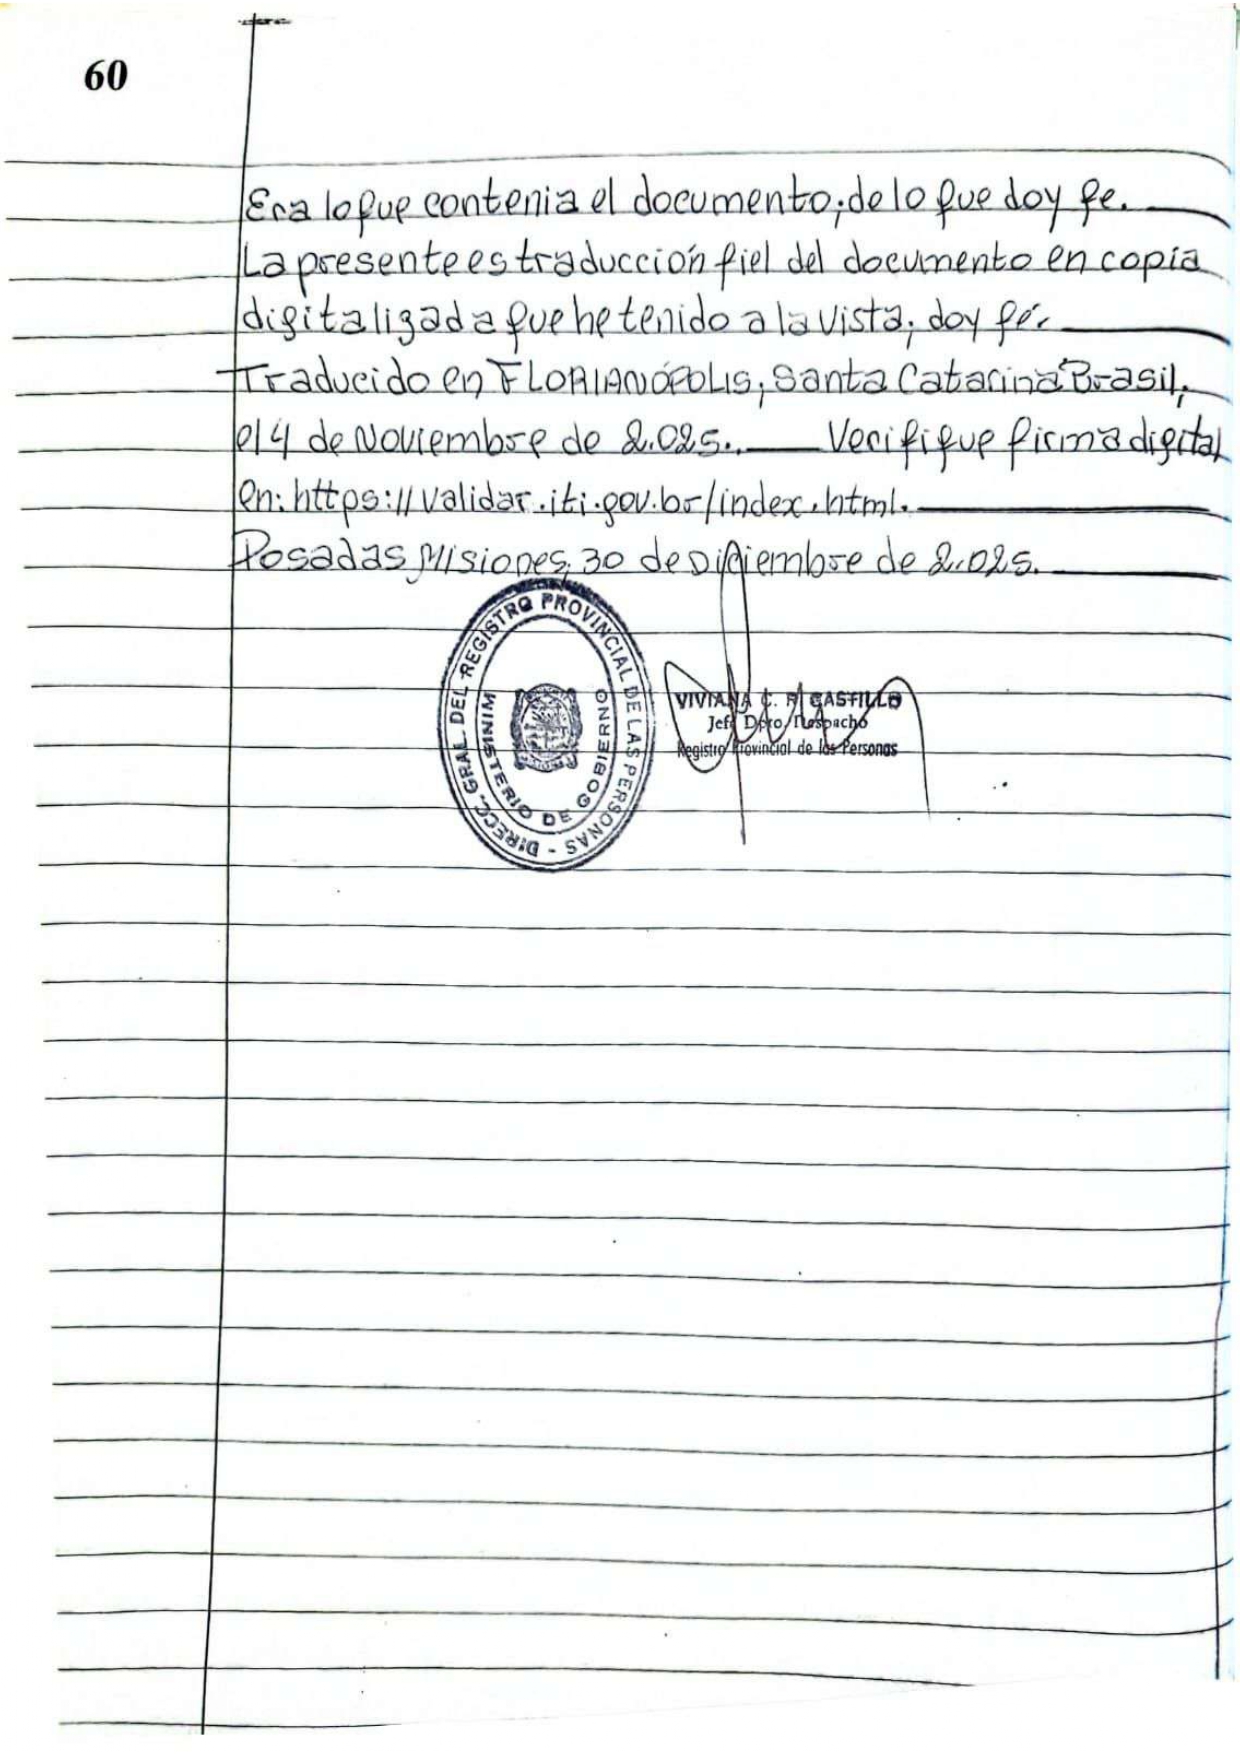 60
Era lo que contenia el documento; de lo que doy fe.
La presente es traducción fiel del documento en copia
digitaligada que he tenido a la vista; doy fé.
Traducido en FLORIANÓPOLIS, Santa Catarina Brasil,
el 4 de Noviembre de 2.025. Verifique firma digital
en: https://validar.iti.gov.br/index.html.
Posadas Misiones, 30 de Diciembre de 2.025.
DIRECC. GRAL. DEL REGISTRO PROVINCIAL DE LAS PERSONAS -
MINISTERIO DE GOBIERNO
VIVIANA C. R. CASTILLO
Jefe Dpto. Despacho
Registro Provincial de las Personas